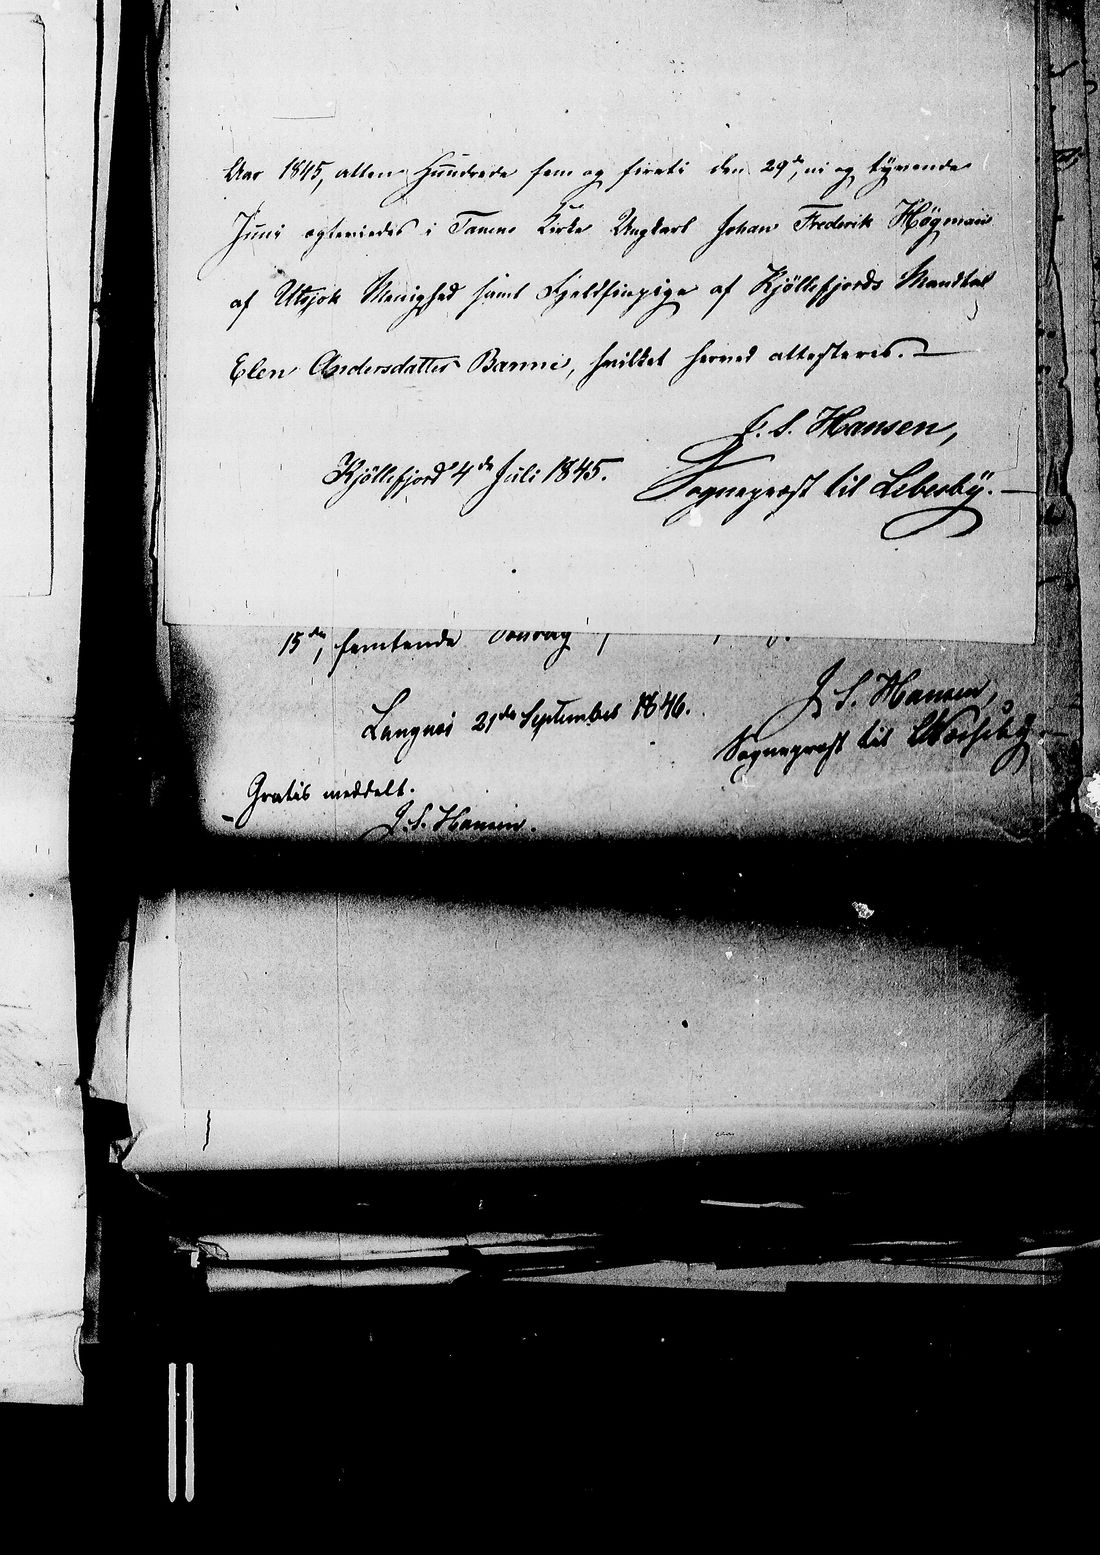 Aar 1845, atten Hundrede fem og firti den 29de, ni og tyvende
Juni egteviedes i Tanens Kirke Ungkarl Johan Frederik Högman
af Utsjok Menighed samt Fjeldfinpige af Kjöllefjords Mandtal
Elen Andersdatter Banne, hvilket herved attesteres.
J. S. Hansen,
Kjöllefjord 4de Juli 1845.
Sognepræst til Lebesby.
15de, femtende
Langnæs 21de September 1846.
J. S. Hansen,
Sognepræst til
Gratis meddelt.
J. S. Hansen.